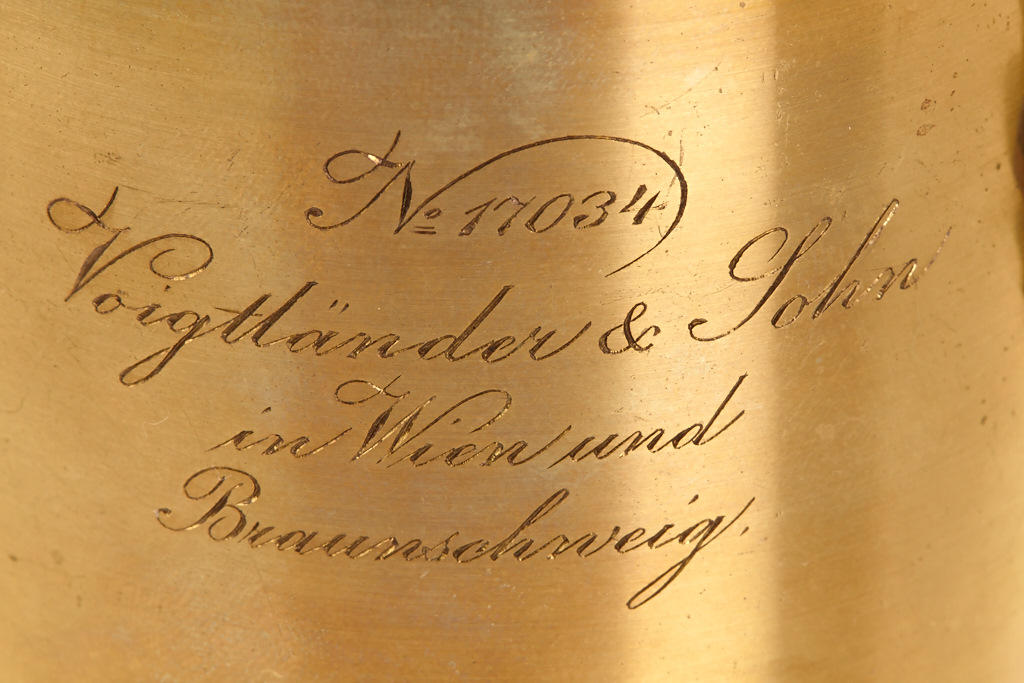 № 17034
Voigtländer & Sohn
in Wien und
Braunschweig.